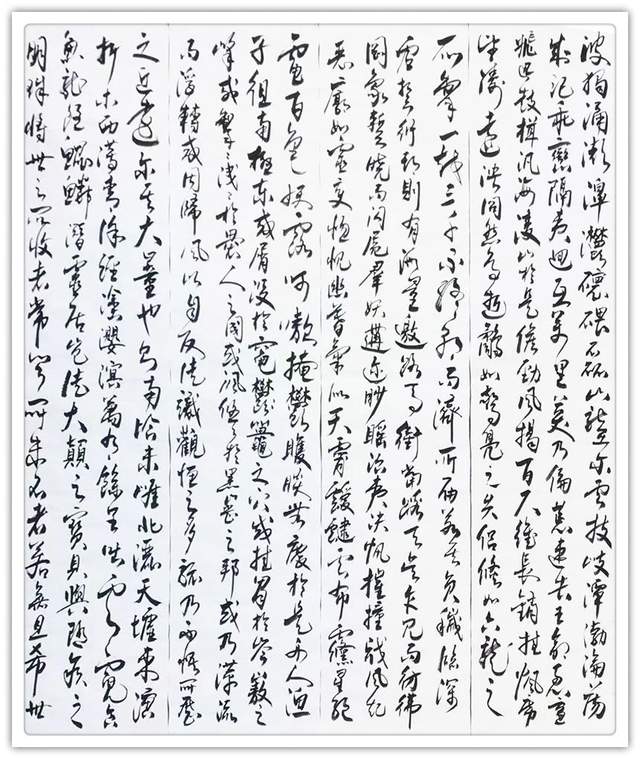 波獨湧澎濞灪㠥碨磊山壟爾其枝岐潭瀹渤蕩
成汜乖蠻隔夷迴互萬里若乃偏荒速告王命急宣
飛駿鼓楫汎海凌山於是候勁風揭百尺維長綃挂帆席
望濤遠決冏然鳥逝鷸如驚鳧之失侶倏如六龍之
所掣一越三千不終朝而濟所屆若其負穢臨深
虛誓愆祈則有海童邀路馬銜當蹊天吳乍見而髣髴
蝄像暫曉而閃屍群妖遘迕眇䁘冶夷決帆摧橦戕風起
惡廓如靈變惚怳幽暮氣似天霄靉靅雲布䨥昱絕
電百色妖露呵㗵掩鬱矆睒無度於是舟人漁
子徂南極東或屑沒於黿鼉之穴或挂罥於岑㟼之
峰或掣掣洩洩於裸人之國或汎汎悠悠於黑齒之邦或乃萍流
而浮轉或因歸風以自反徒識觀怪之多駭乃不悟所歷
之近遠爾其大量也則南澰朱崖北灑天墟東演
析木西薄青徐經途瀴溟萬萬有餘吐雲霓含
魚龍隱鯤鱗潛靈居豈徒太顛之寶貝與隨侯之
明珠將世之所收者常聞所未名者若無且希世